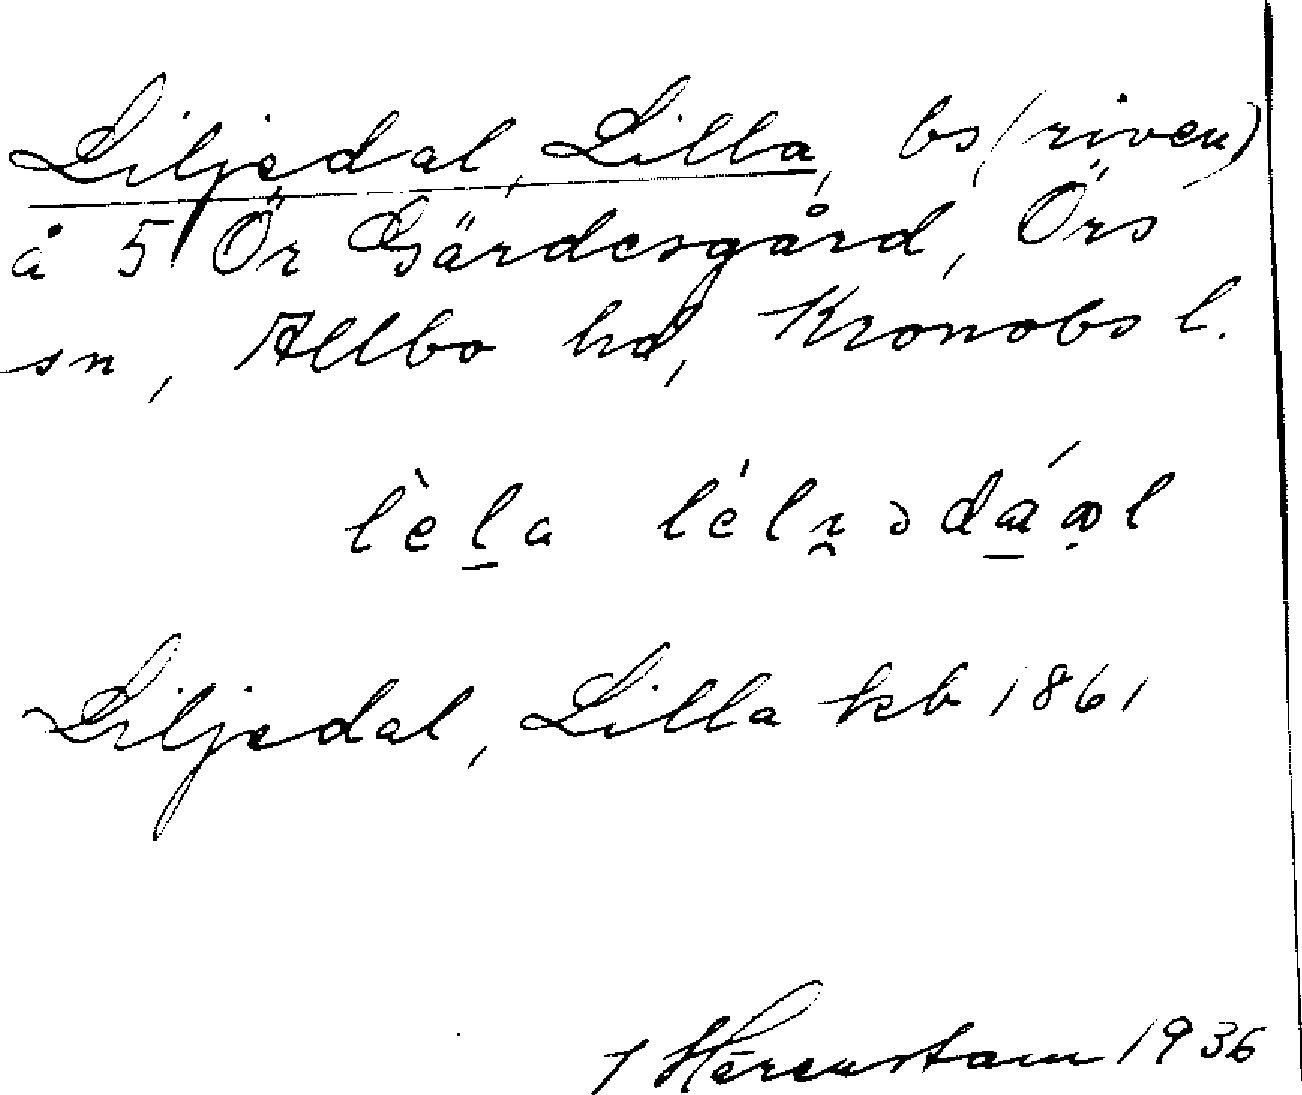 Liljedal, Lilla, bs (riven)
å 5 Ör Gärdesgård, Örs
sn, Allbo hd, Kronobs l.
lèl̠a lélı̯ədá̠ɑ̣l
Liljedal, Lilla kb 1861
1936